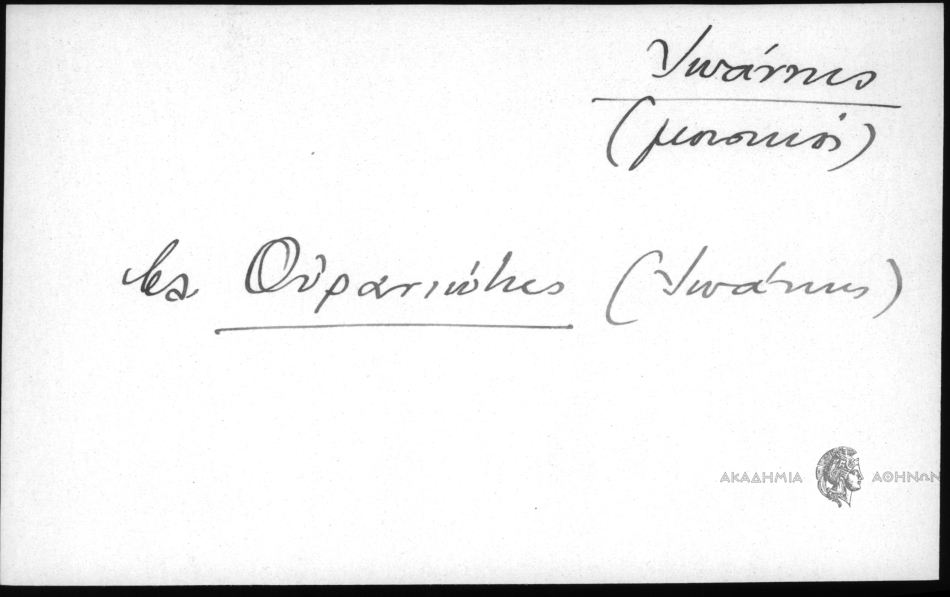 Ἰωάννης
(μουσικός)
βλ. Οὐρανιώτης (Ἰωάννης)
ΑΚΑΔΗΜΙΑ ΑΘΗΝΩΝ